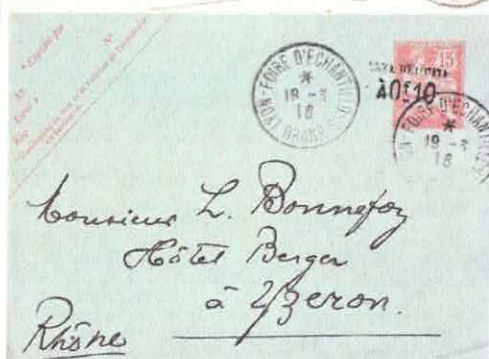 N°
LYON-FOIRE D'ECHANTILLONS
*
18 - 3
16
RHONE
15
TAXE REDUITE
À 0f10
LYON-FOIRE D'ECHANTILLONS
*
19 - 3
16
Monsieur L. Bonnefoy
Hôtel Berger
à Yzeron.
Rhône